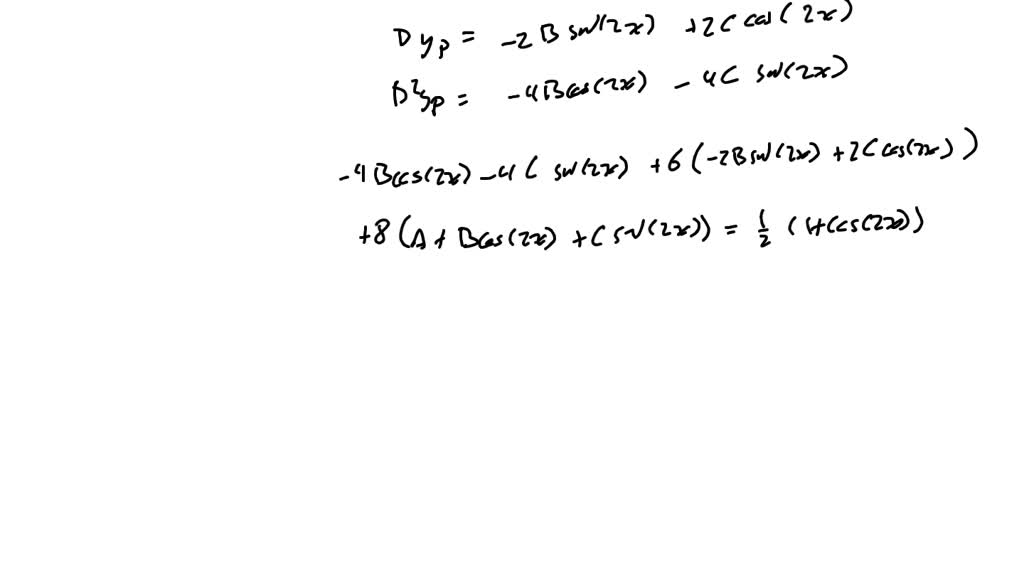 D y_p = -2B sin(2x) + 2C cos(2x)
D²y_p = -4B cos(2x) - 4C sin(2x)
-4B cos(2x) - 4C sin(2x) + 6(-2B sin(2x) + 2C cos(2x))
+8(A + B cos(2x) + C sin(2x)) = 1/2 (1 + cos(2x))